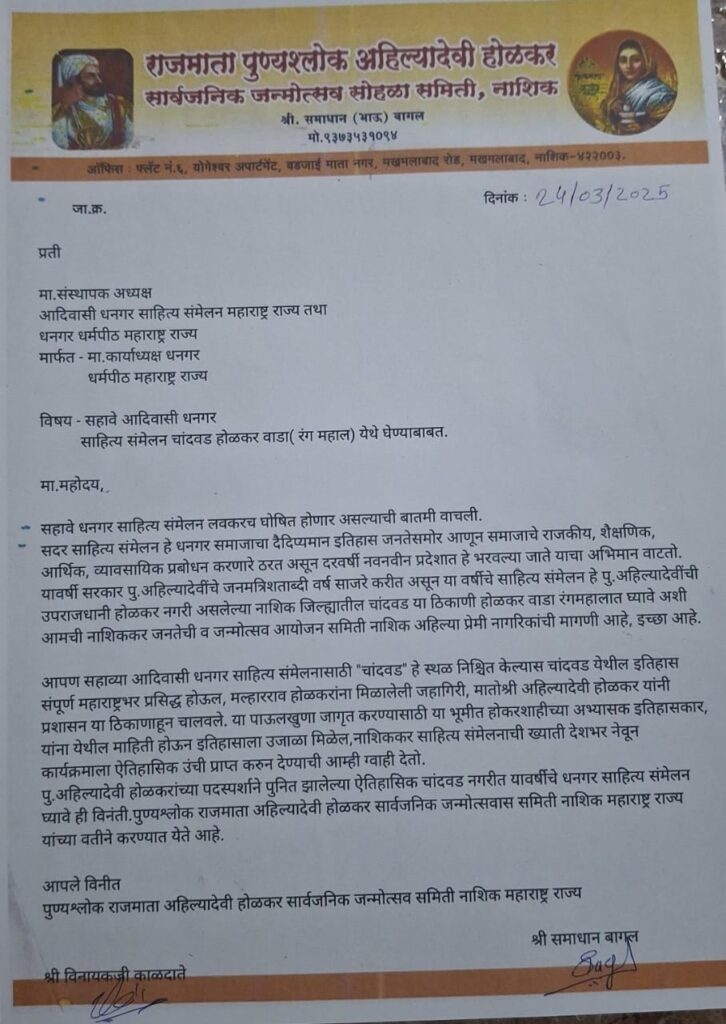 राजमाता पुण्यश्लोक अहिल्यादेवी होळकर
सार्वजनिक जन्मोत्सव सोहळा समिती, नाशिक
श्री. समाधान (भाऊ) बागल
मो.९३७३५३१०९४
ऑफिस : फ्लॅट नं.६, योगेश्वर अपार्टमेंट, वडजाई माता नगर, मखमलाबाद रोड, मखमलाबाद, नाशिक-४२२००३.
दिनांक : 24/03/2025
जा.क्र.
प्रती
मा.संस्थापक अध्यक्ष
आदिवासी धनगर साहित्य संमेलन महाराष्ट्र राज्य तथा
धनगर धर्मपीठ महाराष्ट्र राज्य
मार्फत - मा.कार्याध्यक्ष धनगर
धर्मपीठ महाराष्ट्र राज्य
विषय - सहावे आदिवासी धनगर
साहित्य संमेलन चांदवड होळकर वाडा( रंग महाल) येथे घेण्याबाबत.
मा.महोदय,
सहावे धनगर साहित्य संमेलन लवकरच घोषित होणार असल्याची बातमी वाचली.
सदर साहित्य संमेलन हे धनगर समाजाचा दैदिप्यमान इतिहास जनतेसमोर आणून समाजाचे राजकीय, शैक्षणिक,
आर्थिक, व्यावसायिक प्रबोधन करणारे ठरत असून दरवर्षी नवनवीन प्रदेशात हे भरवल्या जाते याचा अभिमान वाटतो.
यावर्षी सरकार पु.अहिल्यादेवींचे जनमत्रिशताब्दी वर्ष साजरे करीत असून या वर्षीचे साहित्य संमेलन हे पु.अहिल्यादेवींची
उपराजधानी होळकर नगरी असलेल्या नाशिक जिल्ह्यातील चांदवड या ठिकाणी होळकर वाडा रंगमहालात घ्यावे अशी
आमची नाशिककर जनतेची व जन्मोत्सव आयोजन समिती नाशिक अहिल्या प्रेमी नागरिकांची मागणी आहे, इच्छा आहे.
आपण सहाव्या आदिवासी धनगर साहित्य संमेलनासाठी "चांदवड" हे स्थळ निश्चित केल्यास चांदवड येथील इतिहास
संपूर्ण महाराष्ट्रभर प्रसिद्ध होऊल, मल्हारराव होळकरांना मिळालेली जहागिरी, मातोश्री अहिल्यादेवी होळकर यांनी
प्रशासन या ठिकाणाहून चालवले. या पाऊलखुणा जागृत करण्यासाठी या भूमीत होकरशाहीच्या अभ्यासक इतिहासकार,
यांना येथील माहिती होऊन इतिहासाला उजाळा मिळेल,नाशिककर साहित्य संमेलनाची ख्याती देशभर नेवून
कार्यक्रमाला ऐतिहासिक उंची प्राप्त करुन देण्याची आम्ही ग्वाही देतो.
पु.अहिल्यादेवी होळकरांच्या पदस्पर्शाने पुनित झालेल्या ऐतिहासिक चांदवड नगरीत यावर्षीचे धनगर साहित्य संमेलन
घ्यावे ही विनंती.पुण्यश्लोक राजमाता अहिल्यादेवी होळकर सार्वजनिक जन्मोत्सवास समिती नाशिक महाराष्ट्र राज्य
यांच्या वतीने करण्यात येते आहे.
आपले विनीत
पुण्यश्लोक राजमाता अहिल्यादेवी होळकर सार्वजनिक जन्मोत्सव समिती नाशिक महाराष्ट्र राज्य
श्री समाधान बागल
श्री विनायकजी काळदाते